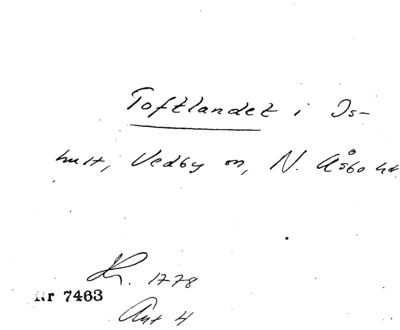 Toftlandet i Is-
hutt, Vedby sn, N. Åsbo hd
Lr. 1778
Nr 7463
Akt 4